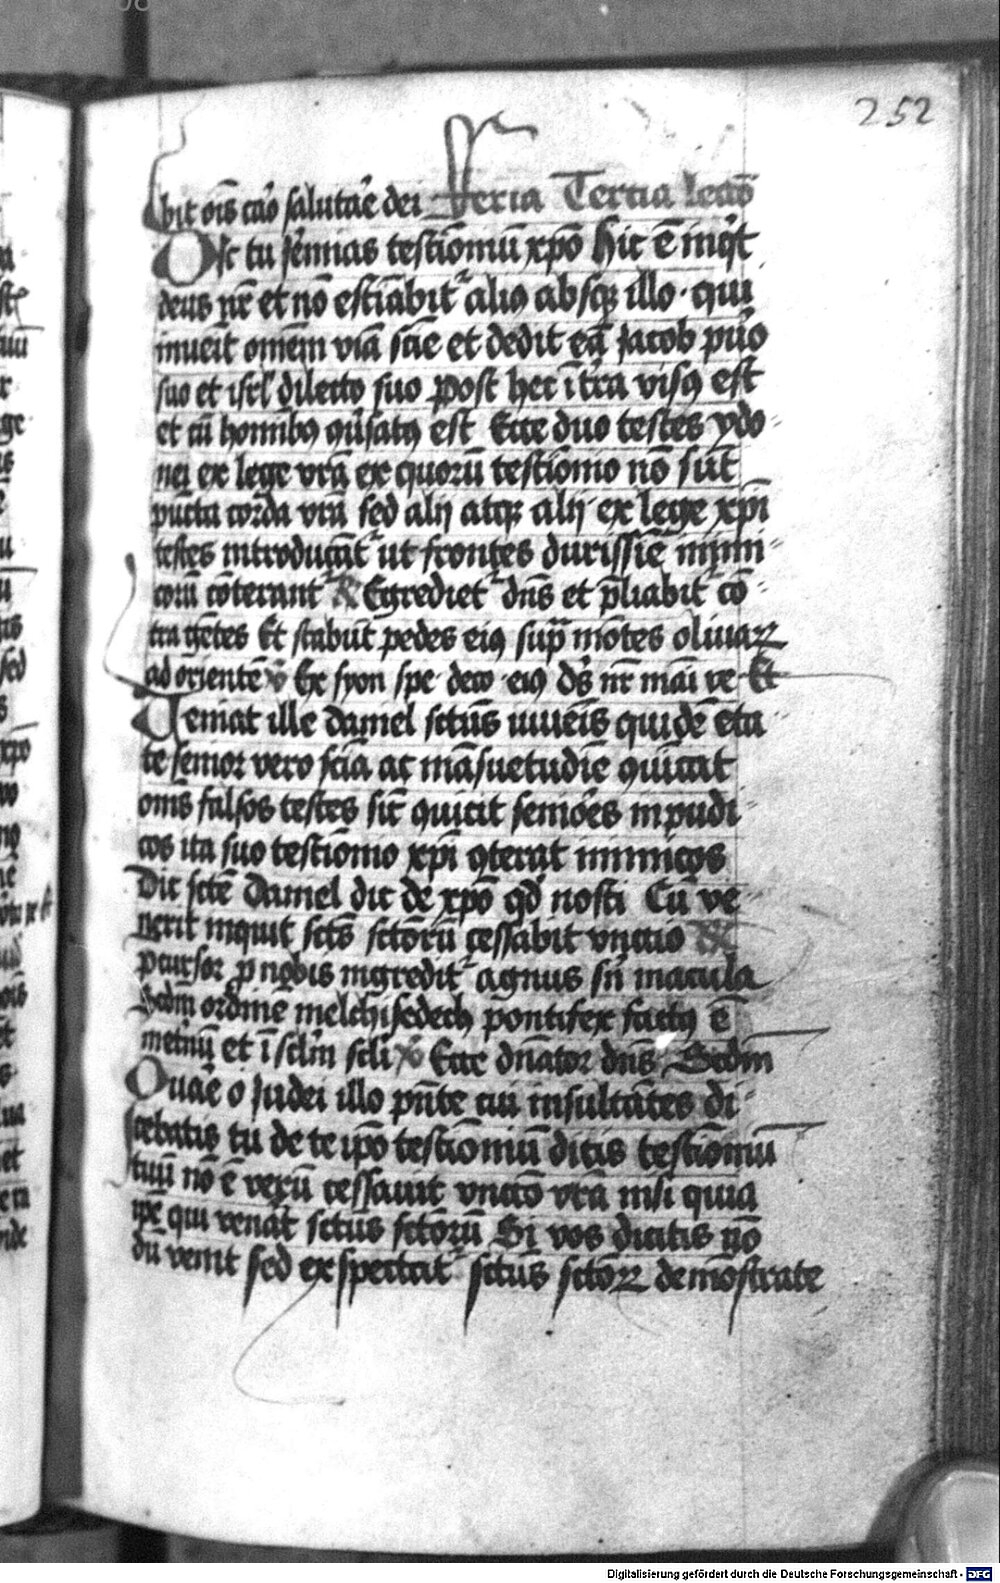 252
bit oīs cāo salutāe dei Feria Tertia lectō
Dic tu Jēmias testiōmiū xp̄o Hic ē inq̄t
deus nr̄ et nō estīabit alio absq; illo · qui
inueīt omēm viā sciē et dedit eā Jacob pūo
suo et isrl̄ dilecto suo post hec ī tr̄a visꝯ est
et cū homībꝯ ꝯūsatꝯ est Ecce duo testes ydo
nei ex lege vrā ex quorū testiōnio nō sūt
pūcta corda vrā sed alij atq; alij ex lege xp̄i
testes introducāt ut frontes durissiē inimi
corū cōterant R Egrediet dn̄s et p̄liabit cō
tra gētes Et stabūt pedes eiꝯ sup̄ mōtes oliuaꝝ
ad orientē v̄ Ex syon spe · deco · eiꝯ dꝰs nr̄ māi ve Et
Veniat ille daniel sctūs iuueīs quidē eta
te senior vero sciā ac māsuetudīe ꝯuicat
oms falsos testes sic̄ ꝯuicit seniōes inpudi
cos ita suo testiōnio xp̄i ꝯterat inimicos
Dic sctē Daniel dic de xp̄o qd̄ nosti Cū ve
nerit inquit sctūs sctōrū cessabit vnctio R
Pcursor p nobis ingredit agnus sn̄ macula
Scdm ordīne melchisedech pontifex factꝯ ē
inet̄nū et ī sclm̄ scli v̄ Ecce dn̄ator dn̄s Scdm
Quāe o Judei illo pn̄te cui insultātes di
cebatis tu de te ip̄o testiōniū dicis testiōniū
tuū nō ē verū cessauit vnctō vrā nisi quia
ip̄e qui venāt sctus sctōrū Si vos dicitis nō
dū venit sed exspectat sctūs sctōꝝ demōstrate
Digitalisierung gefördert durch die Deutsche Forschungsgemeinschaft - DFG